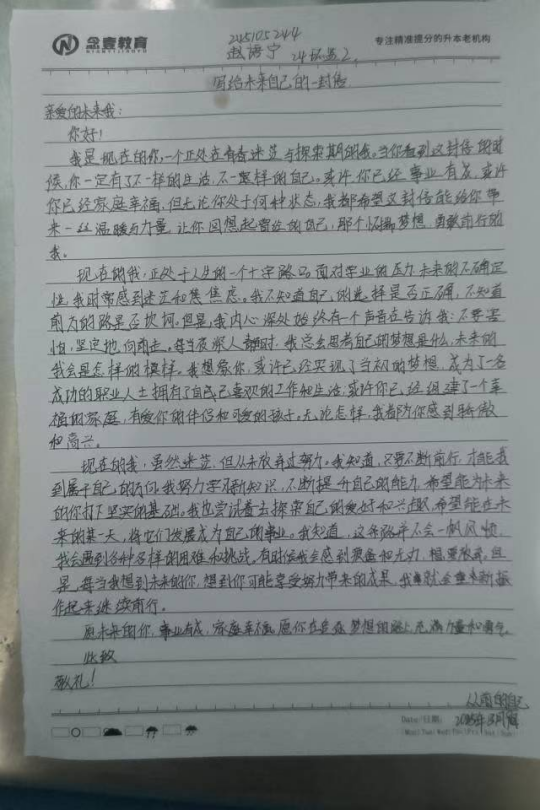 念壹教育
专注精准提分的升本老机构
245105244
赵语宁
写给未来自己的一封信
亲爱的未来我：
你好！
我是现在的你，一个正处在青春迷茫与探索期的我。当你看到这封信的时
候，你一定有了不一样的生活，不一样的自己。或许你已经事业有成，或许
你已经家庭幸福，但无论你处于何种状态，我都希望这封信能给你带
来一丝温暖与力量，让你回想起曾经的自己，那个怀揣梦想，勇敢前行的
我。
现在的我，正处于人生的一个十字路口，面对学业的压力，未来的不确定
性，我时常感到迷茫和焦虑。我不知道自己的选择是否正确，不知道
前方的路是否坎坷。但是，我内心深处始终有个声音在告诉我：不要害
怕，坚定地向前走。每当夜深人静时，我总会思考自己的梦想是什么，未来的
我会是怎样的模样。我想象你，或许已经实现了当初的梦想，成为了一名
成功的职业人士，拥有了自己喜欢的工作和生活；或许你已经组建了一个幸
福的家庭，有爱你的伴侣和可爱的孩子。无论怎样，我都为你感到骄傲
和高兴。
现在的我，虽然迷茫，但从未放弃过努力。我知道，只要不断前行，才能看
到属于自己的方向。我努力学习新知识，不断提升自己的能力，希望能为未来
的你打下坚实的基础。我也尝试着去探索自己的爱好和兴趣，希望能在未
来的某一天，将它们发展成为自己的事业。我知道，这条路并不会一帆风顺，
我会遇到各种各样的困难和挑战，有时候我会感到疲惫和无力，想要放弃。但
是，每当我想到未来的你，想到你可能享受努力带来的成果，我就会重新振
作起来，继续前行。
愿未来的你，事业有成，家庭幸福，愿你在追逐梦想的路上，充满力量和勇气。
此致
敬礼！
Date/日期: